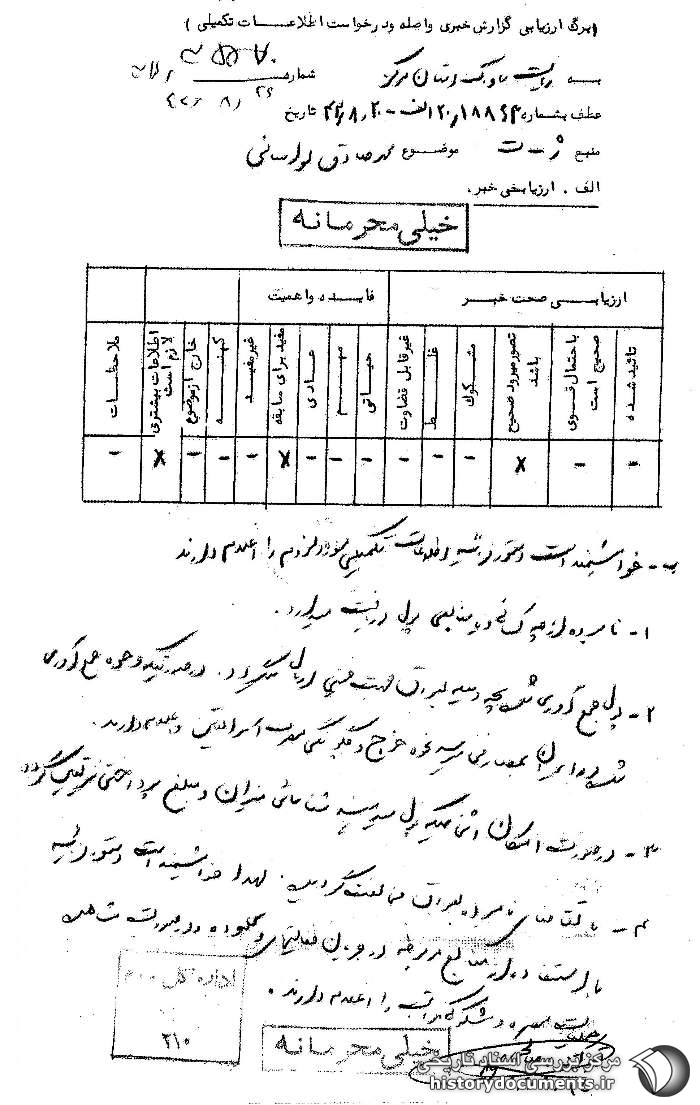 (برگ ارزیابی گزارش خبری واصله ودرخواست اطلاعات تکمیلی)
به ریاست ساواک استان مرکز
شماره
عطف بشماره ۱۸۸۶۳/۲۰ الف - ۲۰/۸/ تاریخ
منبع موضوع محمد صادق لواسانی
الف . ارزیابی خبر .
خیلی محرمانه
ارزیابی صحت خبر فایده و اهمیت
تائید شده
با احتمال قوی صحیح است
تصور میرود صحیح باشد
مشکوک
غلط
غیرقابل قضاوت
حیاتی
مهم
عادی
مفید برای سابقه
غیرمفید
کهنه
خارج از موضوع
اطلاعات بیشتری لازم است
ملاحظات
- - x - - - - - - x - - - x -
ب - خواهشمند است دستور فرمائید اطلاعات تکمیلی مورد لزوم را اعلام دارند
۱- نامبرده از چه کسانی و چه مبالغی پول دریافت میدارد.
۲- پول جمع آوری شده بچه وسیله بعراق جهت خمینی ارسال میگردد. در صورتیکه وجوه جمع آوری
شده در ایران بمصارفی میرسد نحوه خرج و چگونگی مصرف آن را تعیین و اعلام دارند.
۳- در صورت امکان اشخاصیکه پول میدهند شناسائی میزان و مبلغ پرداختی نیز تعیین گردد
۴- با تقاضای نامبرده بعراق مخالفت گردید. لهذا خواهشمند است دستور فرمائید
با استفاده از منابع مربوطه در جریان فعالیتهای وی در صورت
را اعلام دارند.
اداره کل سوم
۳۱۰
خیلی محرمانه
مرکز بررسی اسناد تاریخی
historydocuments.ir